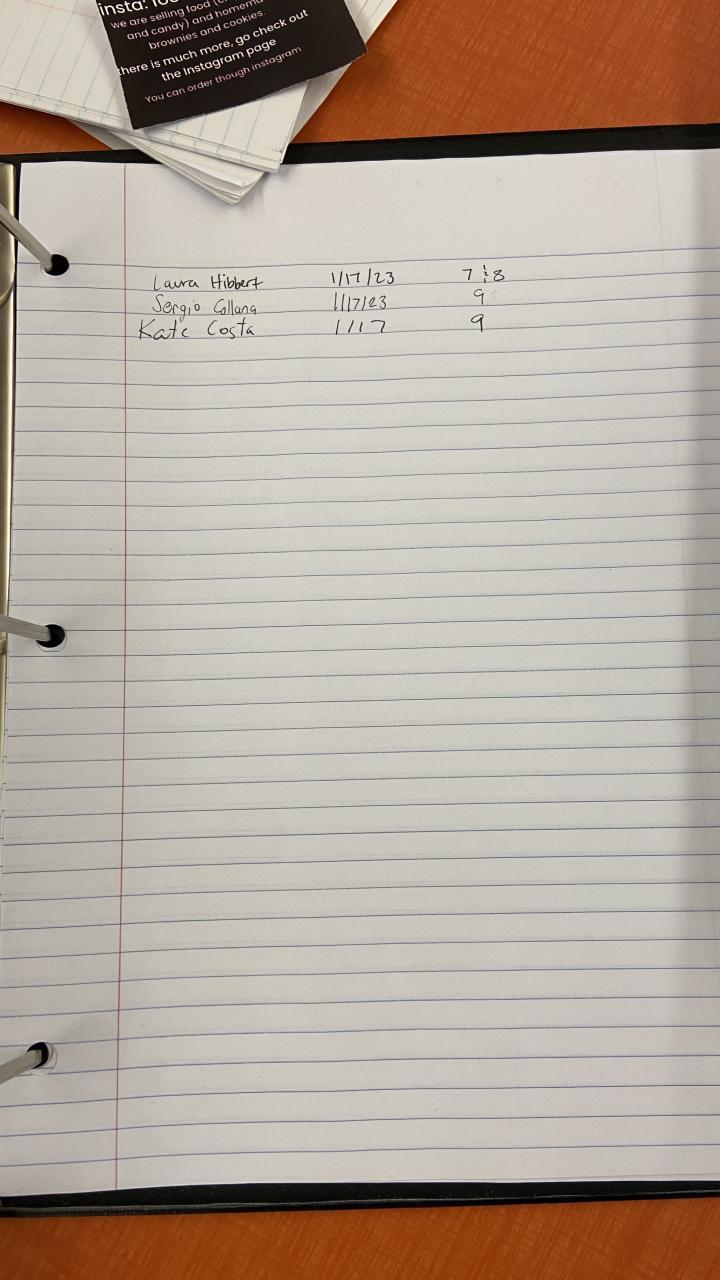 insta:
we are selling food
and candy) and
brownies and cookies.
there is much more, go check out
the Instagram page
You can order though instagram
Laura Hibbert 1/17/23 7 & 8
Sergio Collana 1/17/23 9
Kate Costa 1/17 9